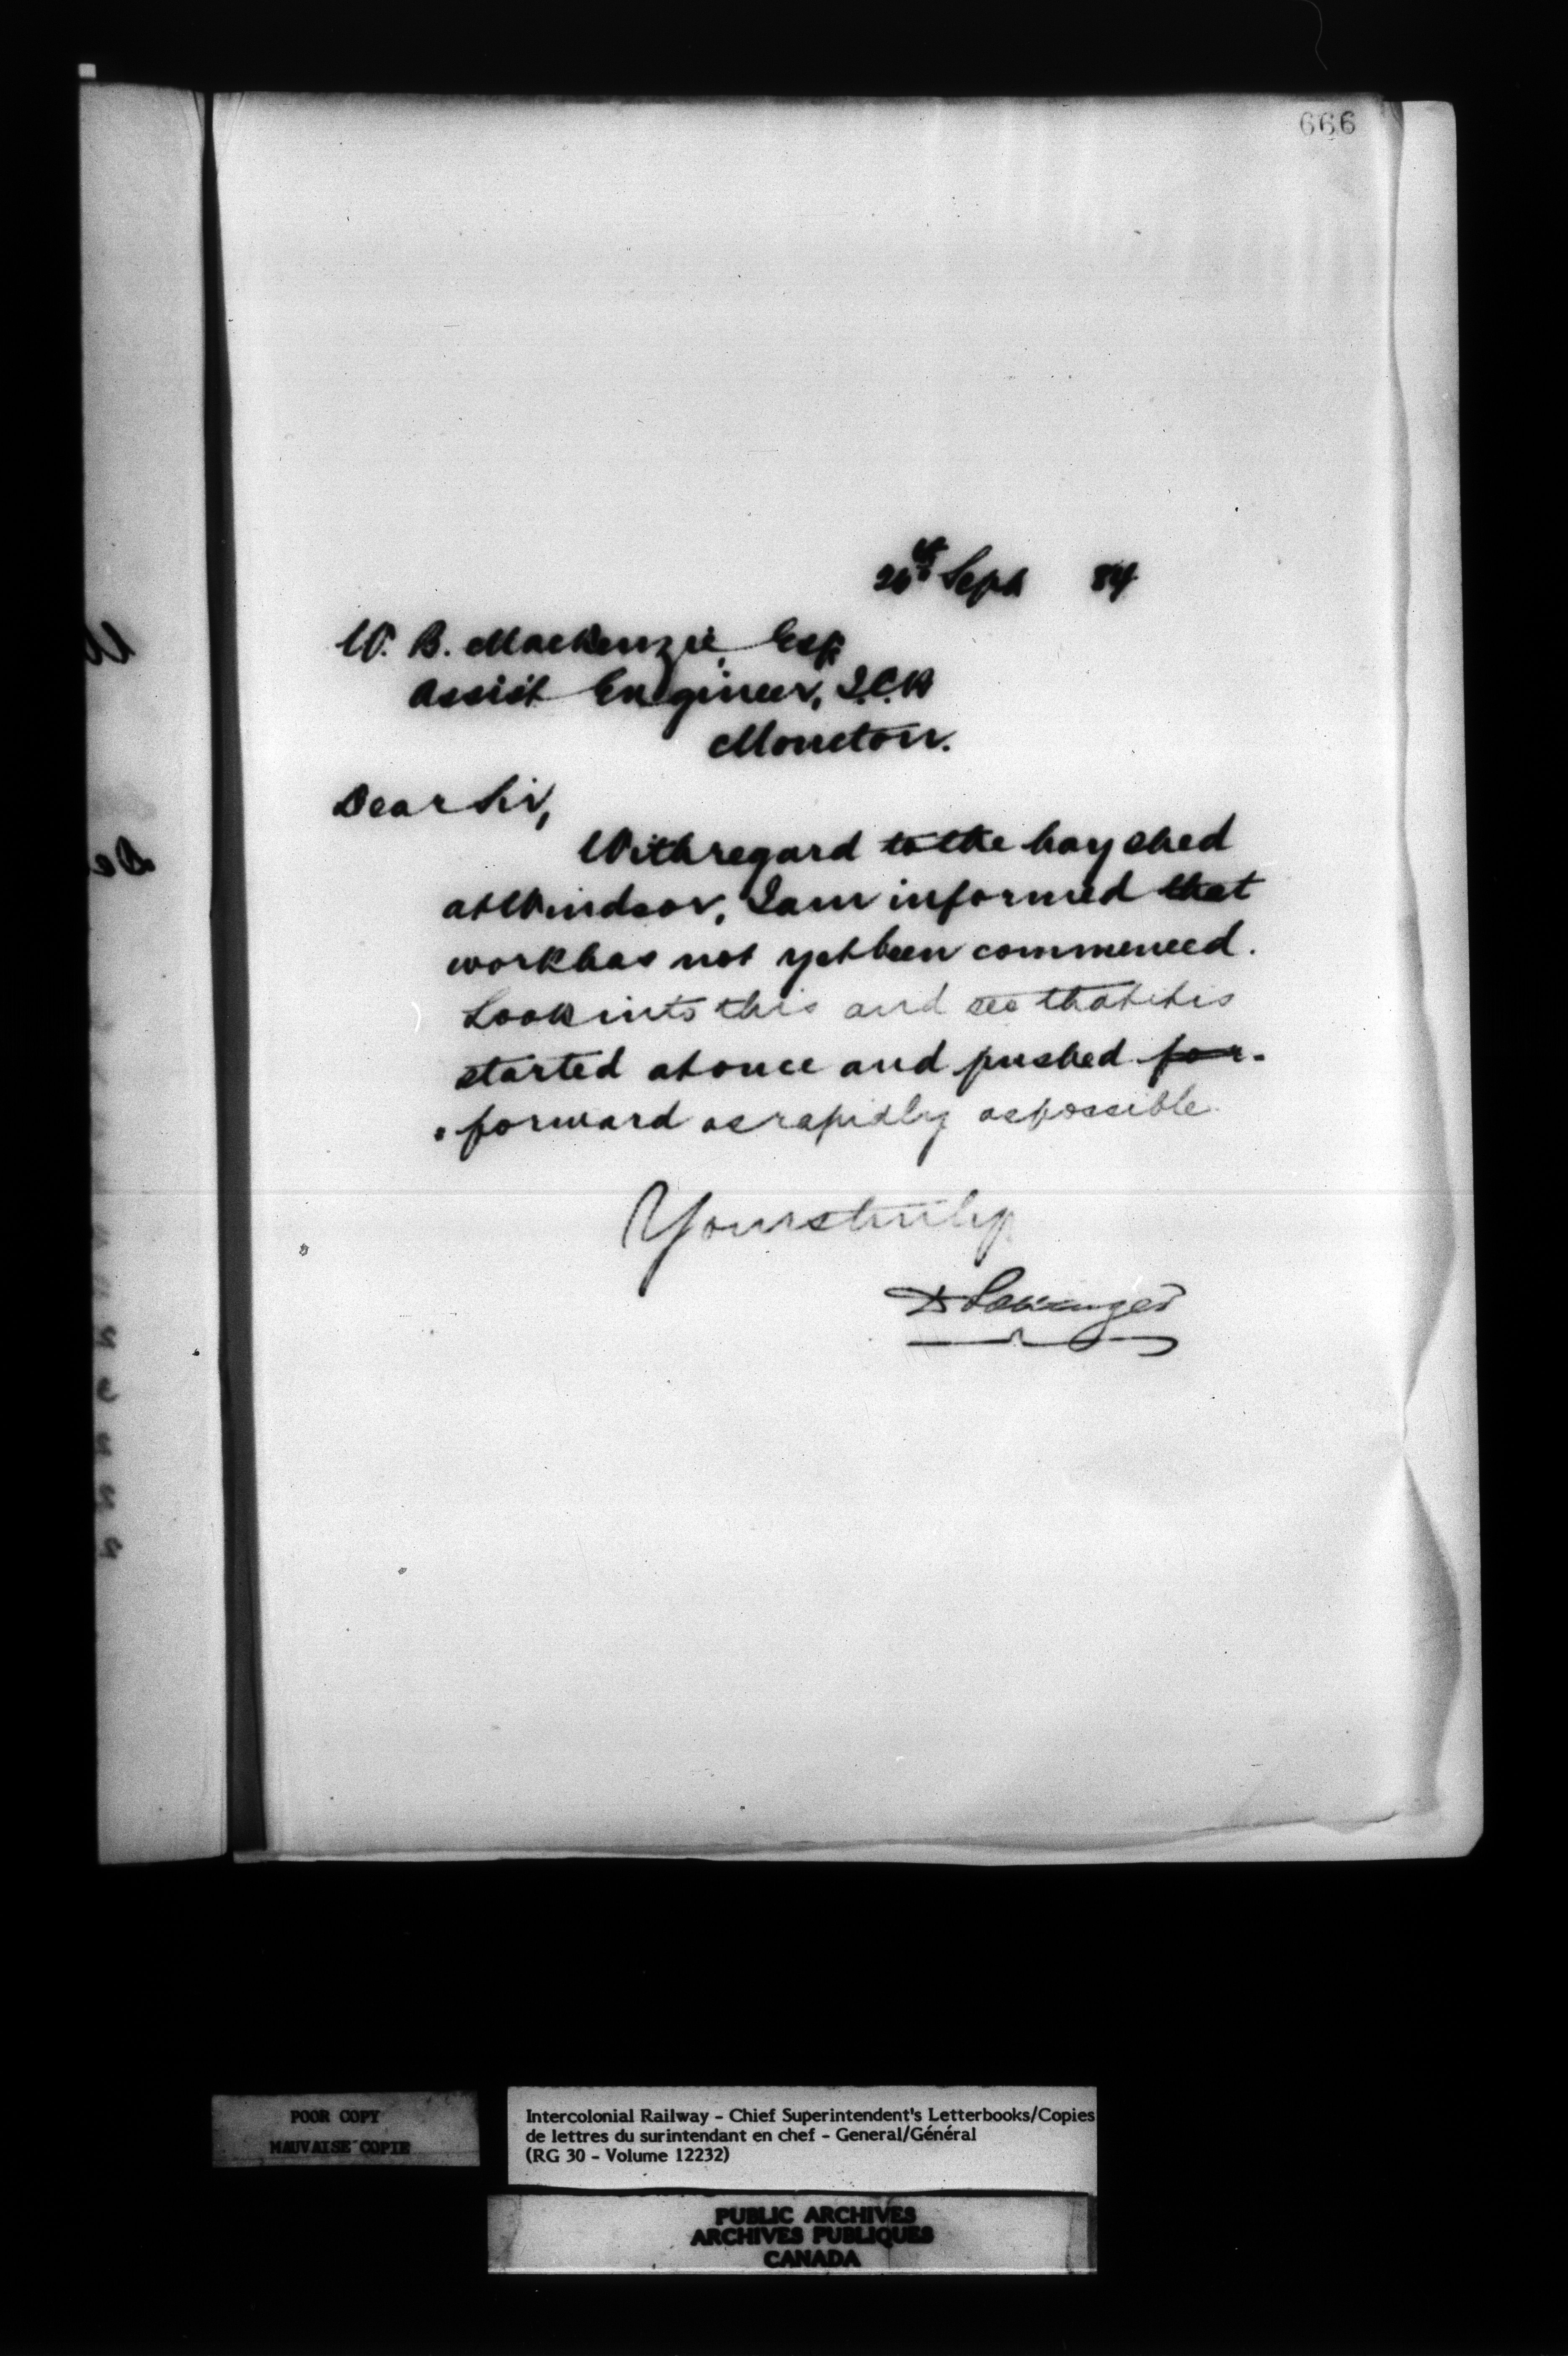 666
26th Sept 84
W. B. MacKenzie, Esq
Assist Engineer, I.C.R
Moncton.
Dear Sir,
With regard to the hay shed
at Windsor, I am informed that
work has not yet been commenced.
Look into this and see that it is
started at once and pushed for-
forward as rapidly as possible.
Yours truly
D Pottinger
POOR COPY
MAUVAISE COPIE
Intercolonial Railway - Chief Superintendent's Letterbooks/Copies
de lettres du surintendant en chef - General/Général
(RG 30 - Volume 12232)
PUBLIC ARCHIVES
ARCHIVES PUBLIQUES
CANADA